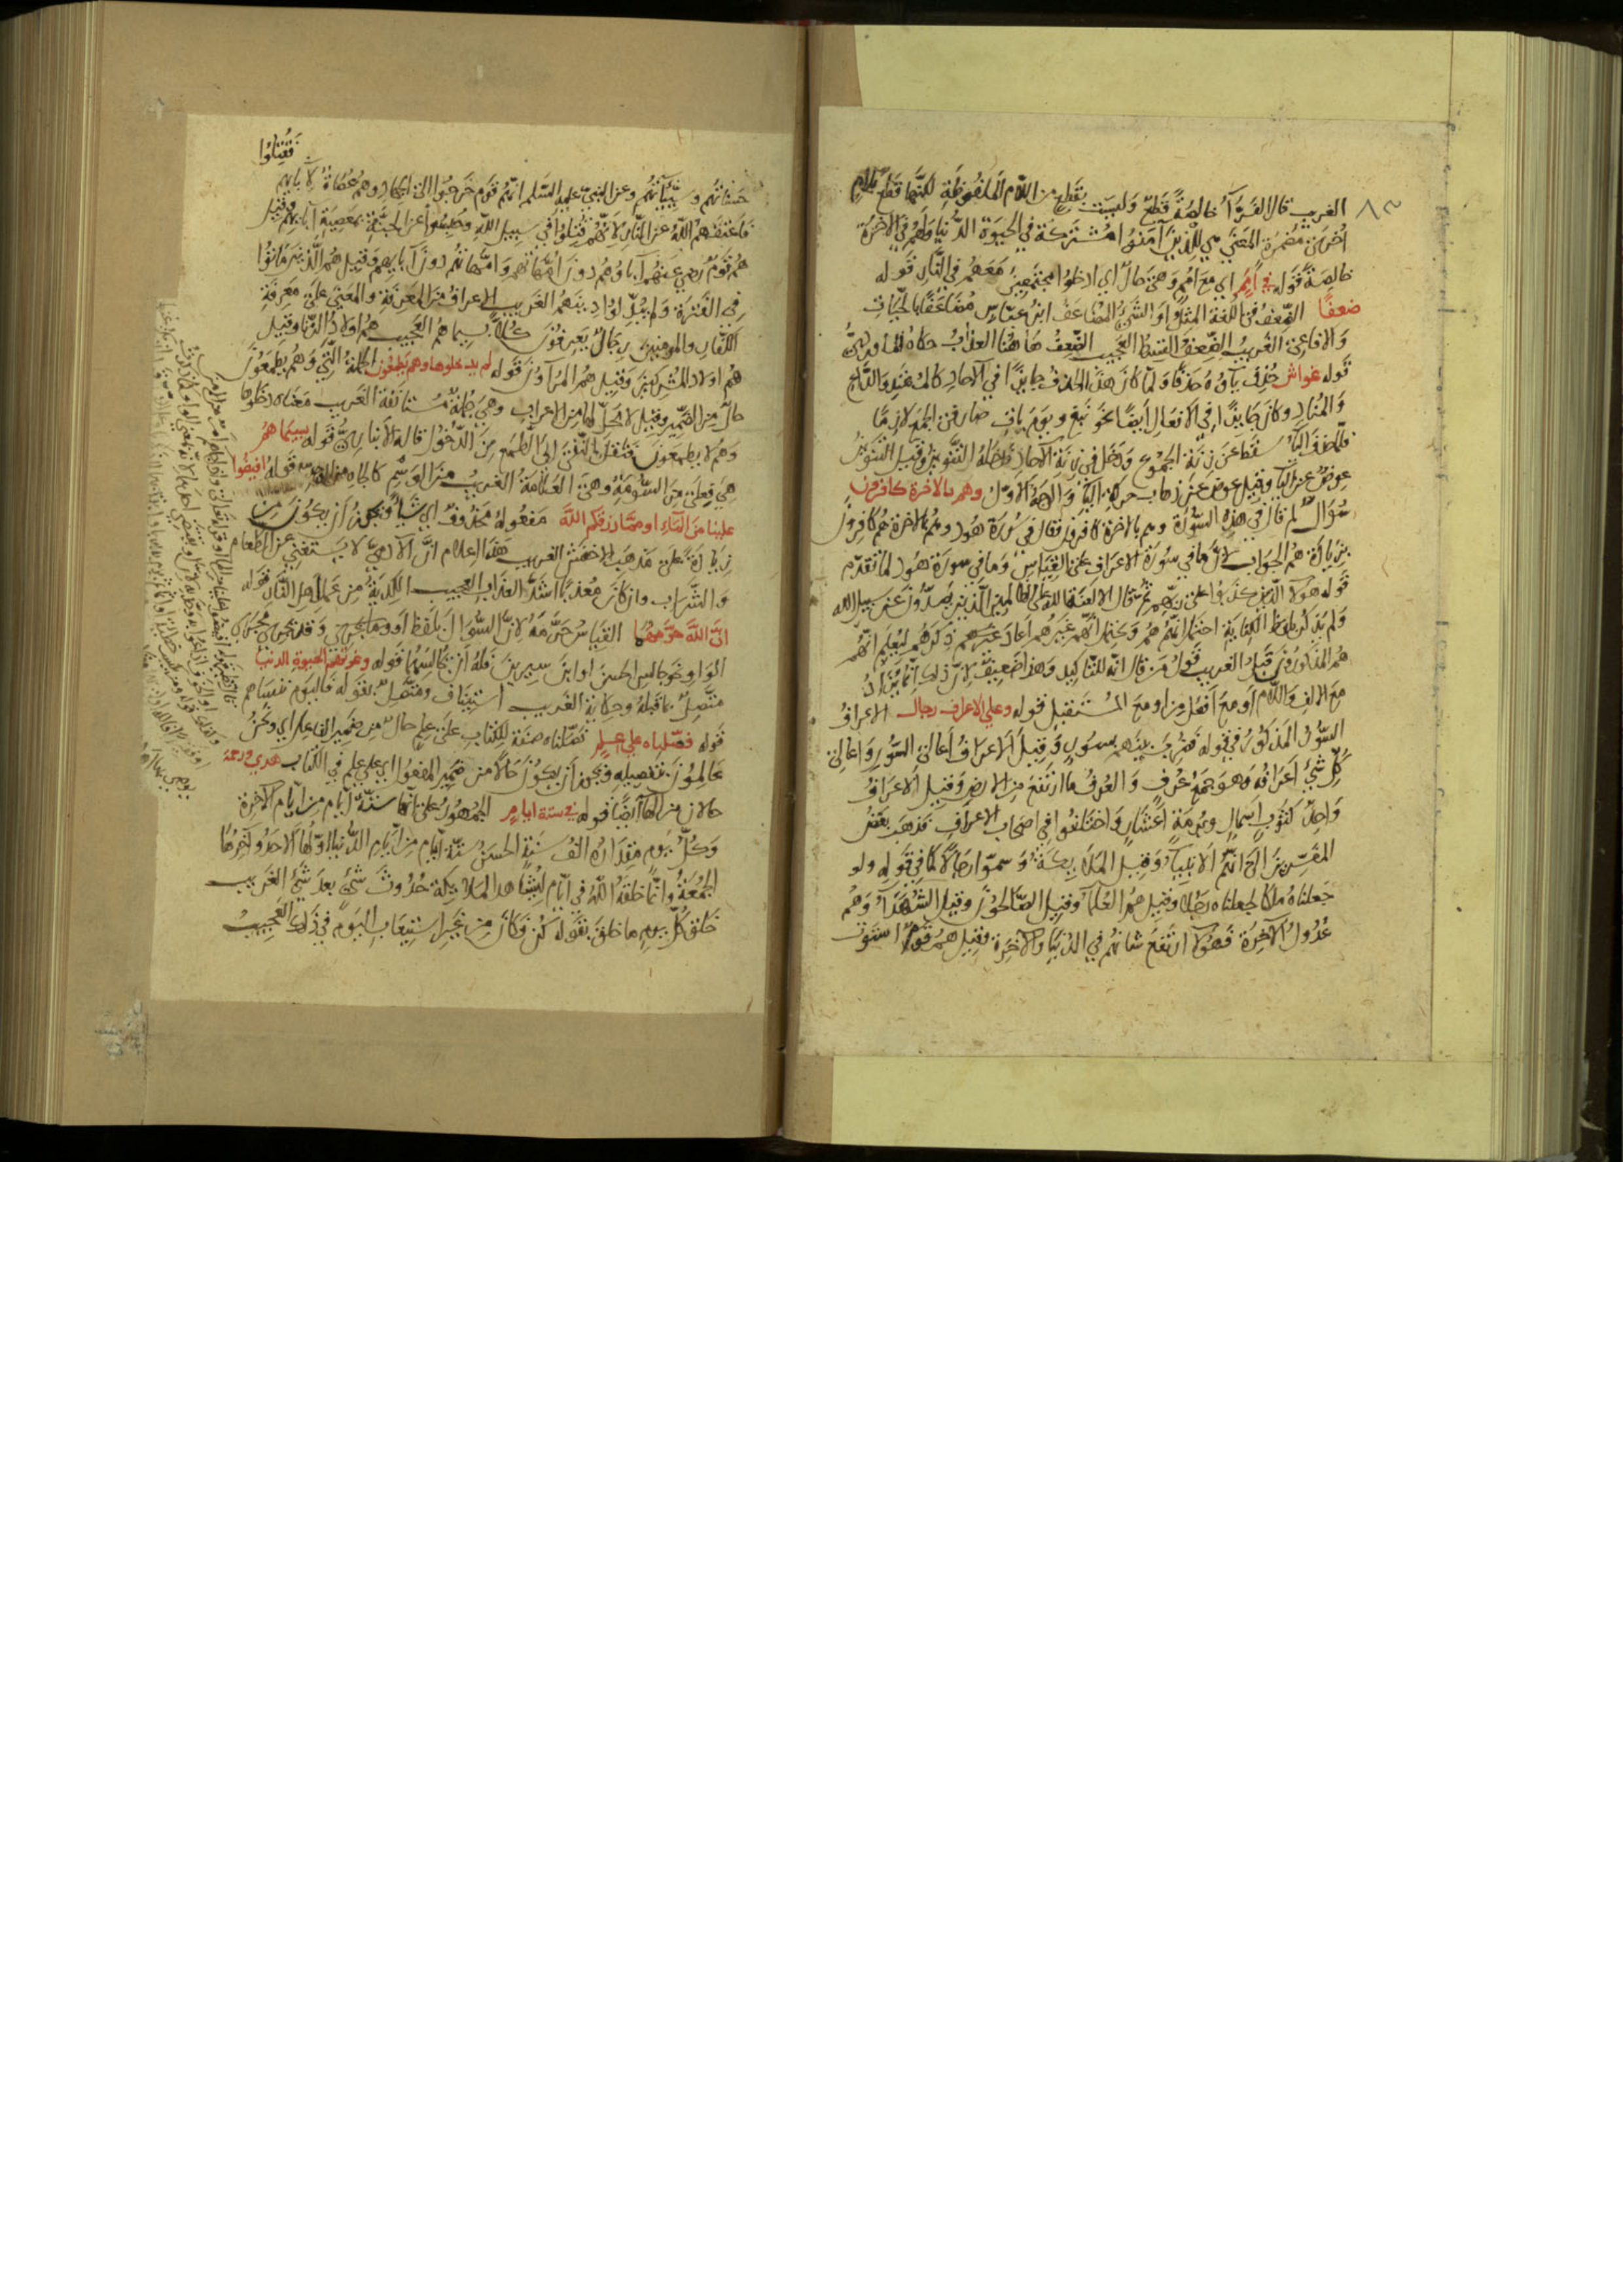 ٨٣
الغريب قال الفرّآء خالصةً قطع وليست بقطع من اللام الملفوظة لكنّها قطع بلام
اخرى مضمرة المعنى هي للذين امنوا مشتركة في الحيوة الدنيا ولهم في الاخرة
خالصة قوله في اُمَمٍ اي مع امم وهي حال اي ادخلوا مجتمعين معهم في النار قوله
ضعفًا الضعف في اللغة المثل او الشيء المضاعف ابن عباس مضاعفًا بالحيات
والافاعي الغريب الضعف العجيب الضعف هاهنا العذاب حكاه الماوردي
قوله غواشٍ حذف ياؤه حذفا ولما كان هذا الحذف جايزًا في الآحاد كالمهتد والداع
والمناد وكان جايزًا في الافعال ايضًا نحو نبغ ويوم يات صار في الجمع لازمًا
فلما حذف اليآ سقط عن زنة الجموع ودخل في زنة الآحاد فدخله التنوين وقيل التنوين
عوض عن اليآ وقيل عوض عن ذهاب حركة اليآ والوجه الاول وهم بالاخرة كافرون
سؤال لم قال في هذه السورة وهم بالاخرة كافرون فقال في سورة هود وهم بالاخرة هم كافرون
بزيادة هم الجواب لانّ ما في سورة الاعراف على القياس وما في سورة هود لما تقدّم
قوله هؤلا الذين كذبوا على ربهم ثم قال الا لعنة الله على الظالمين الذين يصدّون عن سبيل الله
ولم يذكر بلفظ الكناية احتمل انهم هم ويحتمل انهم غيرهم اعاد ذكرهم ليعلم انهم
هم المذكورون قبل الغريب قول من قال انه للتاكيد وهذا ضعيف لان ذلك انما يزاد
مع الالف واللام او مع افعل من او مع المستقبل قوله وعلى الاعراف رجال الاعراف
السور المذكور في قوله فضرب بينهم بسور وقيل الاعراف اعالي السور واعالي
كل شيء اعرافه وهو جمع عرف والعرف ما ارتفع من الارض وقيل الاعراف
واحد كثوب اسمال وبرمة اعشار واختلفوا في اصحاب الاعراف فذهب بعض
المفسرين الى انهم الانبيآ وقيل الملايكة وسمّوا رجالًا كما في قوله ولو
جعلناه ملكا لجعلناه رجلا وقيل هم العلمآ وقيل الصالحون وقيل الشهدآ وهم
عدول الآخرة فهؤلا ارتفع شانهم في الدنيا والاخرة وقيل هم قوم استوت
حسناتهم وسيّئاتهم وعن النبي عليه السلم انهم قوم خرجوا الى الجهاد وهم عصاة لآبايهم
فقتلوا
فاعتقهم الله عن النار لانهم قتلوا في سبيل الله وحبسوا عن الجنة بمعصية آبايهم وقيل
هم قوم رضي عنهم آباؤهم دون امهاتهم وامهاتهم دون آبايهم وقيل هم الذين ماتوا
في الفترة ولم يبدّلوا دينهم الغريب الاعراف من المعرفة والمعنى على معرفة
الكفار والمومنين رجال يعرفون كلًا بسيماهم العجيب هم اولاد الزنا وقيل
هم اولاد المشركين وقيل هم المرآؤن قوله لم يدخلوها وهم يطمعون الجملة التي وهم يطمعون
حال من الضمير وقيل لا محل لها من الاعراب وهي جملة مستانفة الغريب معناه دخلوها
وهم لا يطمعون فنقل النفي الى الطمع من الدخول قاله الانباري قوله بسيماهم
هي فعلى من السومة وهي العلامة الغريب من الوسم كالجاه من الوجه قوله افيضوا
علينا من المآء او مما رزقكم الله مفعوله محذوف اي شيأ ويجوز ان يكون من
زيادة على مذهب الاخفش الغريب هذا اعلام انّ الآدمي لا يستغني عن الطعام
والشراب وان كان معذبًا اشدّ العذاب العجيب الكدية من عمل اهل النار قوله
انّ الله حرّمهما القياس حرّمه لانّ السؤال بلفظ او وما يجري وقد يجري مجرى
الواو نحو جالس الحسن او ابن سيرين فله ان يجالسهما قوله وغرتهم الحيوة الدنيا
متّصل بما قبله وحكاية الغريب استيناف ومتصل بقوله فاليوم ننساهم
قوله فصّلناه على علمٍ فصّلناه صفة للكتاب على علم حال من ضمير الفاعل اي ونحن
عالمون بتفصيله ويجوز ان يكون حالًا من ضمير المفعول اي على علم في الكتاب هدى ورحمة
حالان من الهآ ايضًا قوله في ستة ايامٍ الجمهور على انها ستّة ايام من ايام الآخرة
وكل يوم مقداره الف سنة الحسن ستّة ايام من ايام الدنيا اولها الاحد وآخرها
الجمعة وانما خلقه الله في ايّام ليشاهد الملايكة حدوث شيء بعد شيء الغريب
خلق كل يوم ما خلق بقوله كن فكان من غير استيعاب اليوم في ذلك العجيب